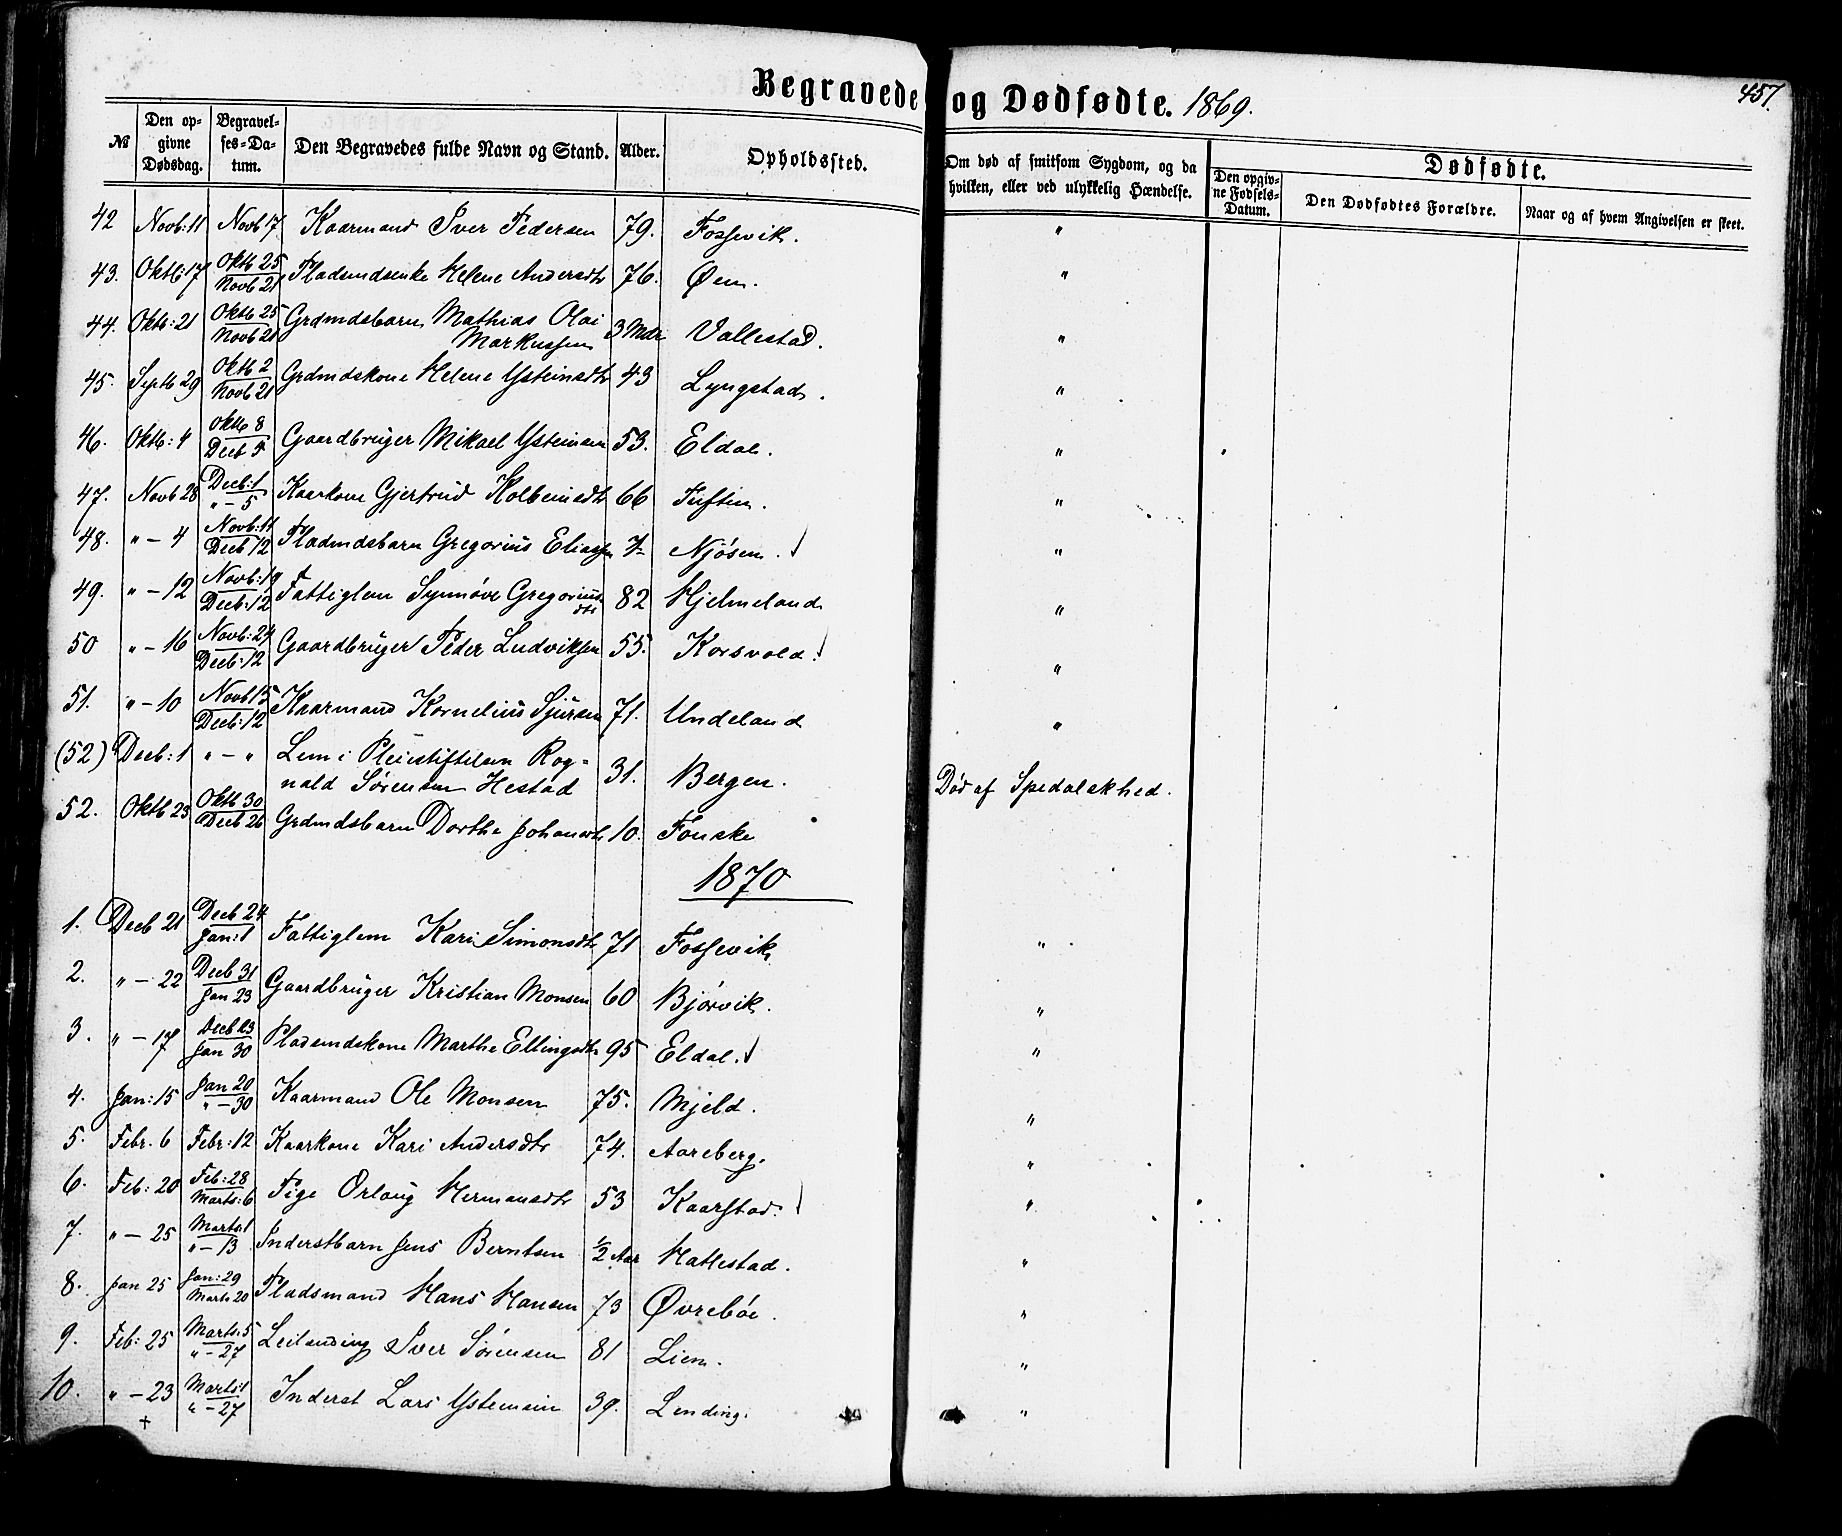 Begravede og Dødfødte. 1869.
457.
№ | Den opgivne Dødsdag. | Begravelses-Datum. | Den Begravedes fulde Navn og Stand. | Alder. | Opholdssted. | Om død af smitsom Sygdom, og da hvilken, eller ved ulykkelig Hændelse. | Dødfødte. | Den opgivne Fødsels-Datum. | Den Dødfødtes Forældre. | Naar og af hvem Angivelsen er skeet.
42 Novb: 11 Novb 17 Kaarmand Iver Pedersen 79. Fossevik. "
43. Oktb: 17 Oktb 25 Novb 21 Pladsmdsenke Helene Andersdtr 76. Øen. "
44. Oktb: 21 Oktb 25 Novb 21 Grdmdsbarn Mathias Olai
Markussen 3 Mdr Vallestad. "
45. Septb 29 Oktb 2 Novb 21 Grdmdskone Helene Ysteinsdtr 43 Lyngstad. "
46. Oktb: 4 Oktb 8 Decb 5 Gaardbruger Mikael Ysteinsen 53. Eldal. "
47. Novb 28 Decb: 1 " - 5 Kaarkone Gjertrud Kolbeinsdtr 66 Tuften. "
48. " - 4 Novb: 11 Decb 12 Pladmdsbarn Gregorius Eliassen Njøsen. "
49. " - 12 Novb: 19 Decb: 12 Fattiglem Synnøve Gregorius
dtr 82 Hjelmeland "
50 " - 16 Novb: 24 Decb: 12 Gaardbruger Peder Ludviksen 55. Korsvold. "
51. " - 10 Novb 15 Decb: 12 Kaarmand Kornelius Sjursen 71. Undeland "
(52) Decb: 1 " - " Lem i Pleiestiftelsen Rag-
nald Sørensen Hestad 31. Bergen. Død af Spedalskhed.
52. Oktb 23 Oktb 30 Decb 26 Grdmdsbarn Dorthe Johansdtr 10. Fonske
1870
1. Decb 21 Decb 24 Jan: 1 Fattiglem Kari Simonsdtr 71 Fossevik "
2. " - 22 Decb 31 Jan 23 Gaardbruger Kristian Monsen 60 Bjørvik. "
3. " - 17 Decb 23 Jan 30 Pladsmdskone Marthe Ellingsdtr 95 Eldal. "
4. Jan: 15 Jan 20 " - 30 Kaarmand Ole Monsen 75. Mjeld. "
5. Febr. 6 Febr: 12 Kaarkone Kari Andersdtr 74. Aareberg. "
6. Feb: 20 Feb: 28 Marts: 6 Pige Orlaug Hermansdtr 53 Kaarstad. "
7. " - 25 Marts: 1 " - 13 Inderstbarn Jens Berntsen ½ Aar Hatlestad. "
8. Jan 25 Jan: 29 Marts 20 Pladsmand Hans Hansen 73 Øvrebøe. "
9. Feb: 25 Marts: 5 " - 27 Leilending Iver Sørensen 81 Lien. "
10. " - 23 Marts: 1 " - 27 Inderst Lars Ysteinsen 39. Lending. "
+